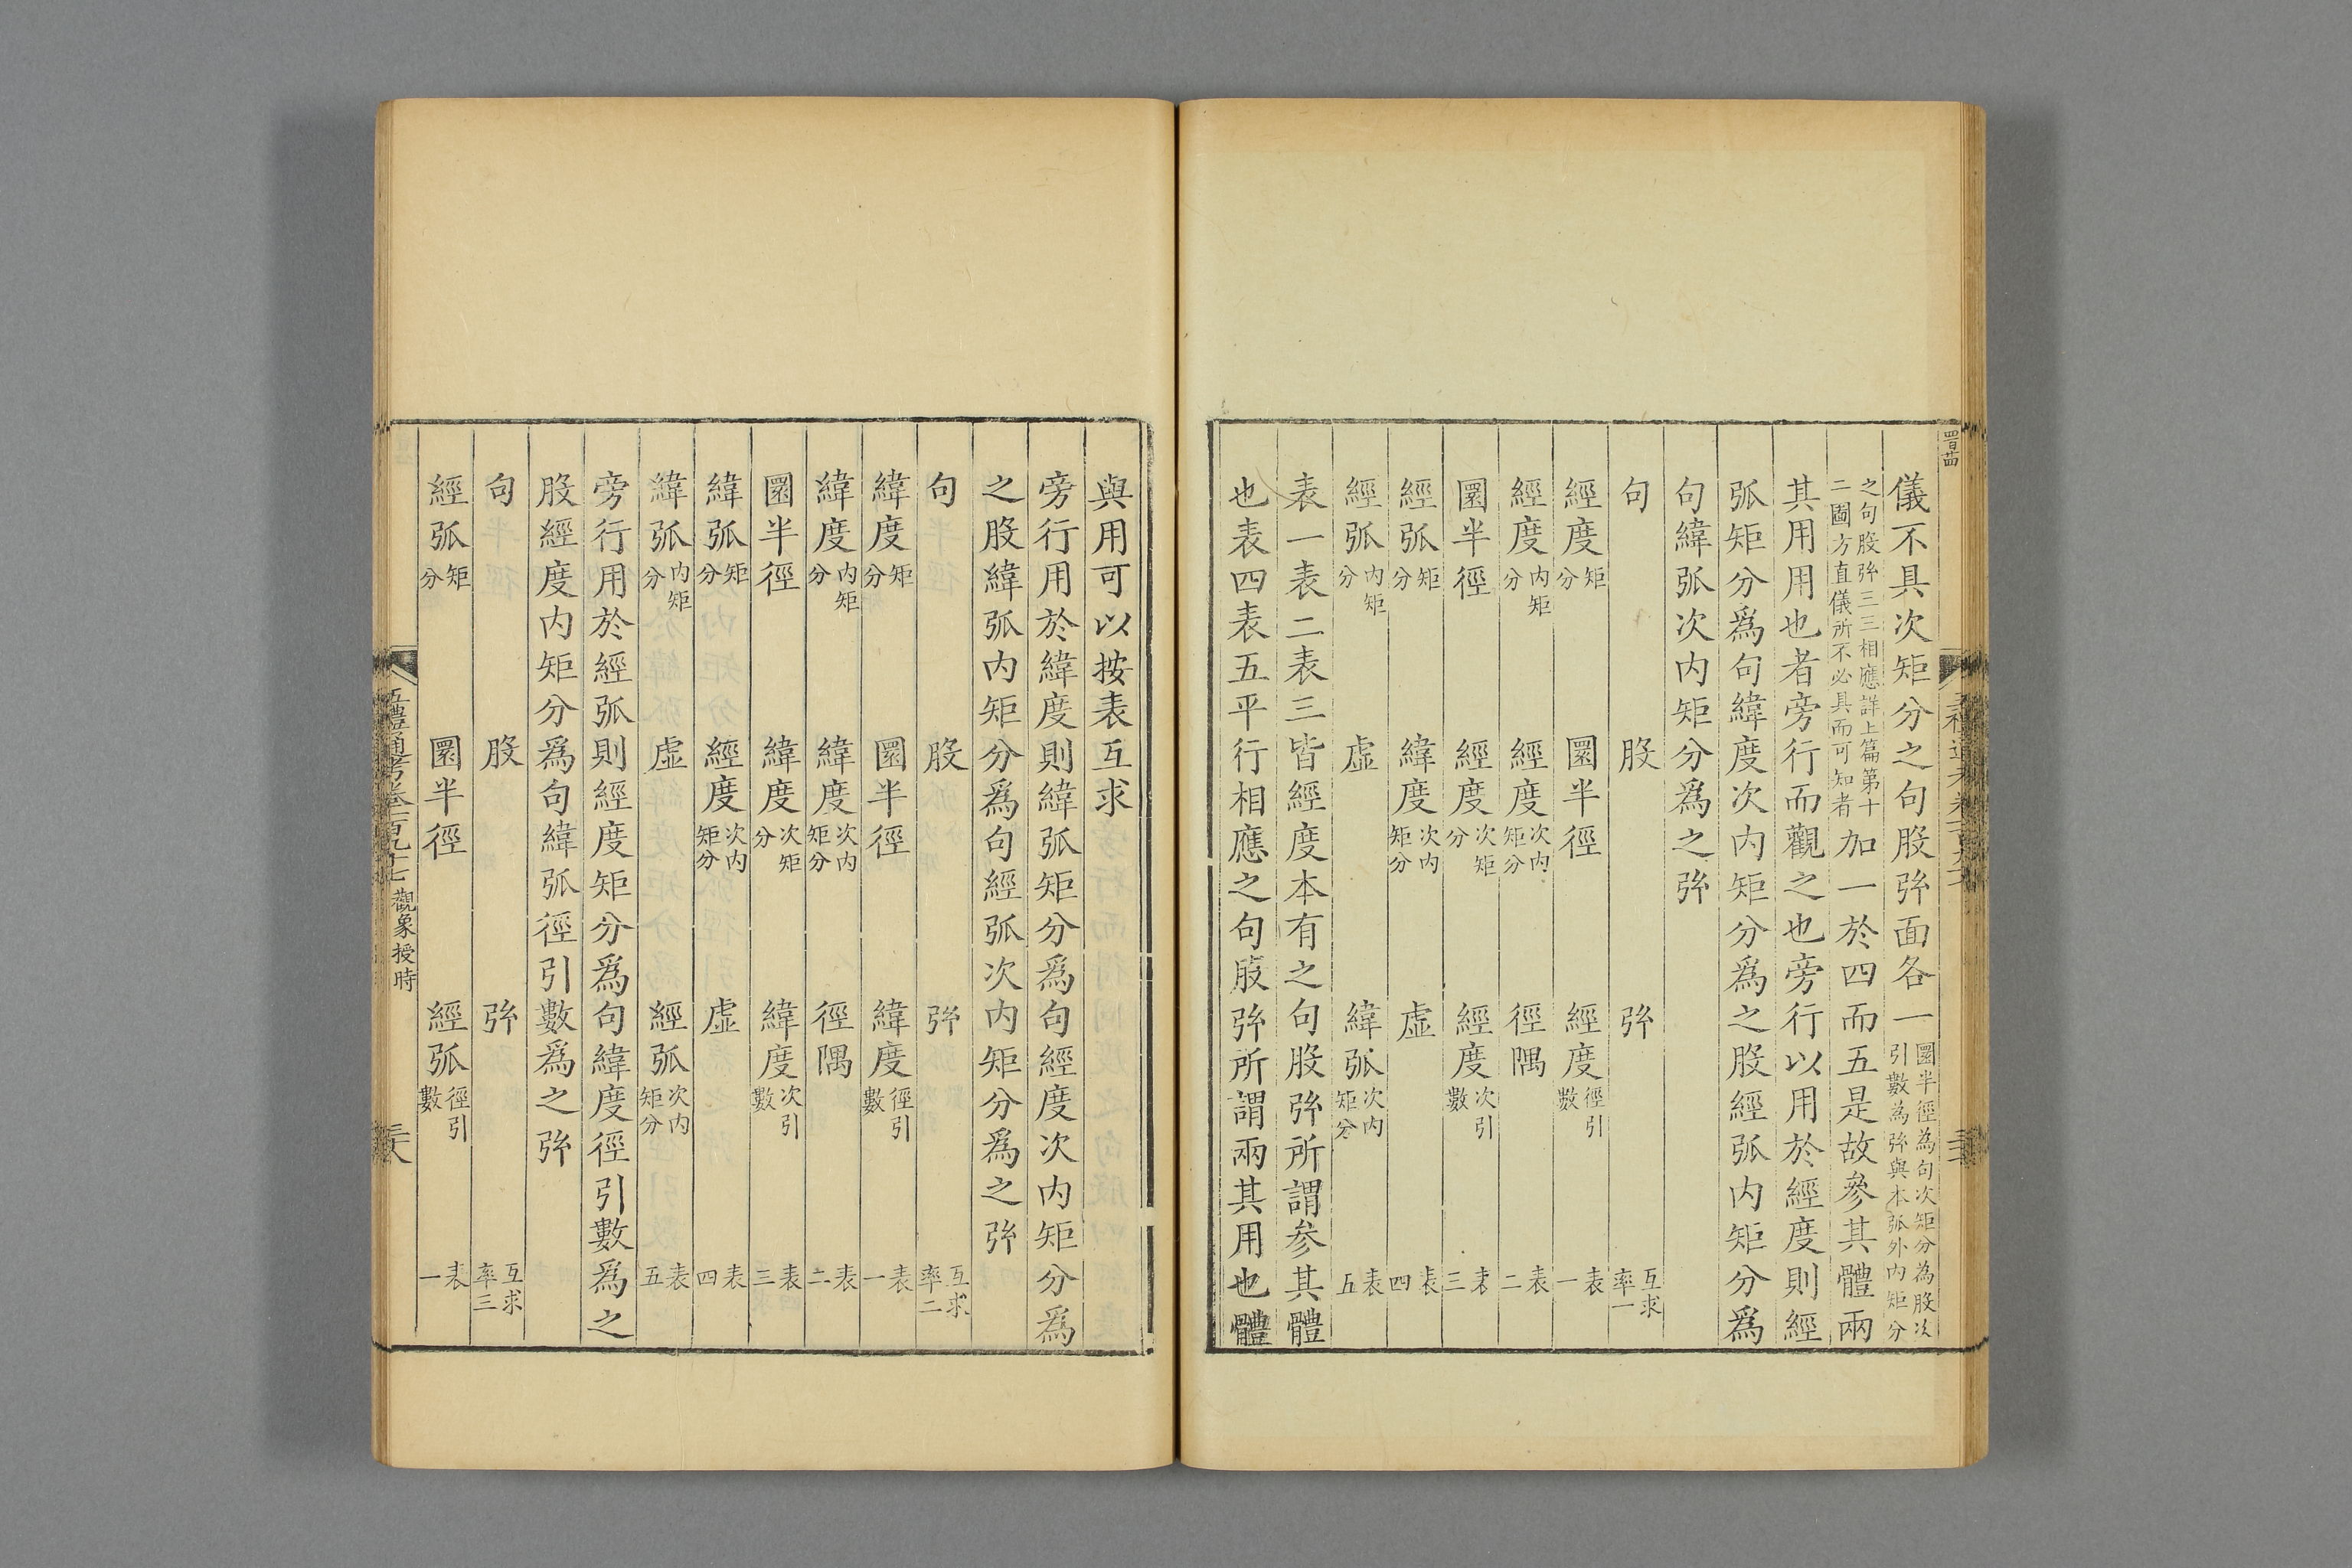 儀不具次矩分之句股弦面各一圜半徑為句次矩分為股次
引數為弦與本弧外內矩分
之句股弦三三相應詳上篇第十
二圖方直儀所不必具而可知者加一於四而五是故參其體兩
其用用也者旁行而觀之也旁行以用於經度則經
弧矩分爲句緯度次內矩分爲之股經弧內矩分爲
句緯弧次內矩分爲之弦
句 股 弦 互求率一
經度矩分 圜半徑 經度徑引數 表一
經度內矩分 經度次內矩分 徑隅 表二
圜半徑 經度次矩分 經度次引數 表三
經弧矩分 緯度次內矩分 虛 表四
經弧內矩分 虛 緯弧次內矩分 表五
表一表二表三皆經度本有之句股弦所謂参其體
也表四表五平行相應之句股弦所謂兩其用也體
與用可以按表互求
旁行用於緯度則緯弧矩分爲句經度次內矩分爲
之股緯弧內矩分爲句經弧次內矩分爲之弦
句 股 弦 互求率二
緯度矩分 圜半徑 緯度徑引數 表一
緯度內矩分 緯度次內矩分 徑隅 表二
圜半徑 緯度次矩分 緯度次引數 表三
緯弧矩分 經度次內矩分 虛 表四
緯弧內矩分 虛 經弧次內矩分 表五
旁行用於經弧則經度矩分爲句緯度徑引數爲之
股經度內矩分爲句緯弧徑引數爲之弦
句 股 弦 互求率三
經弧矩分 圜半徑 經弧徑引數 表一
五禮通考卷一百九十七 觀象授時